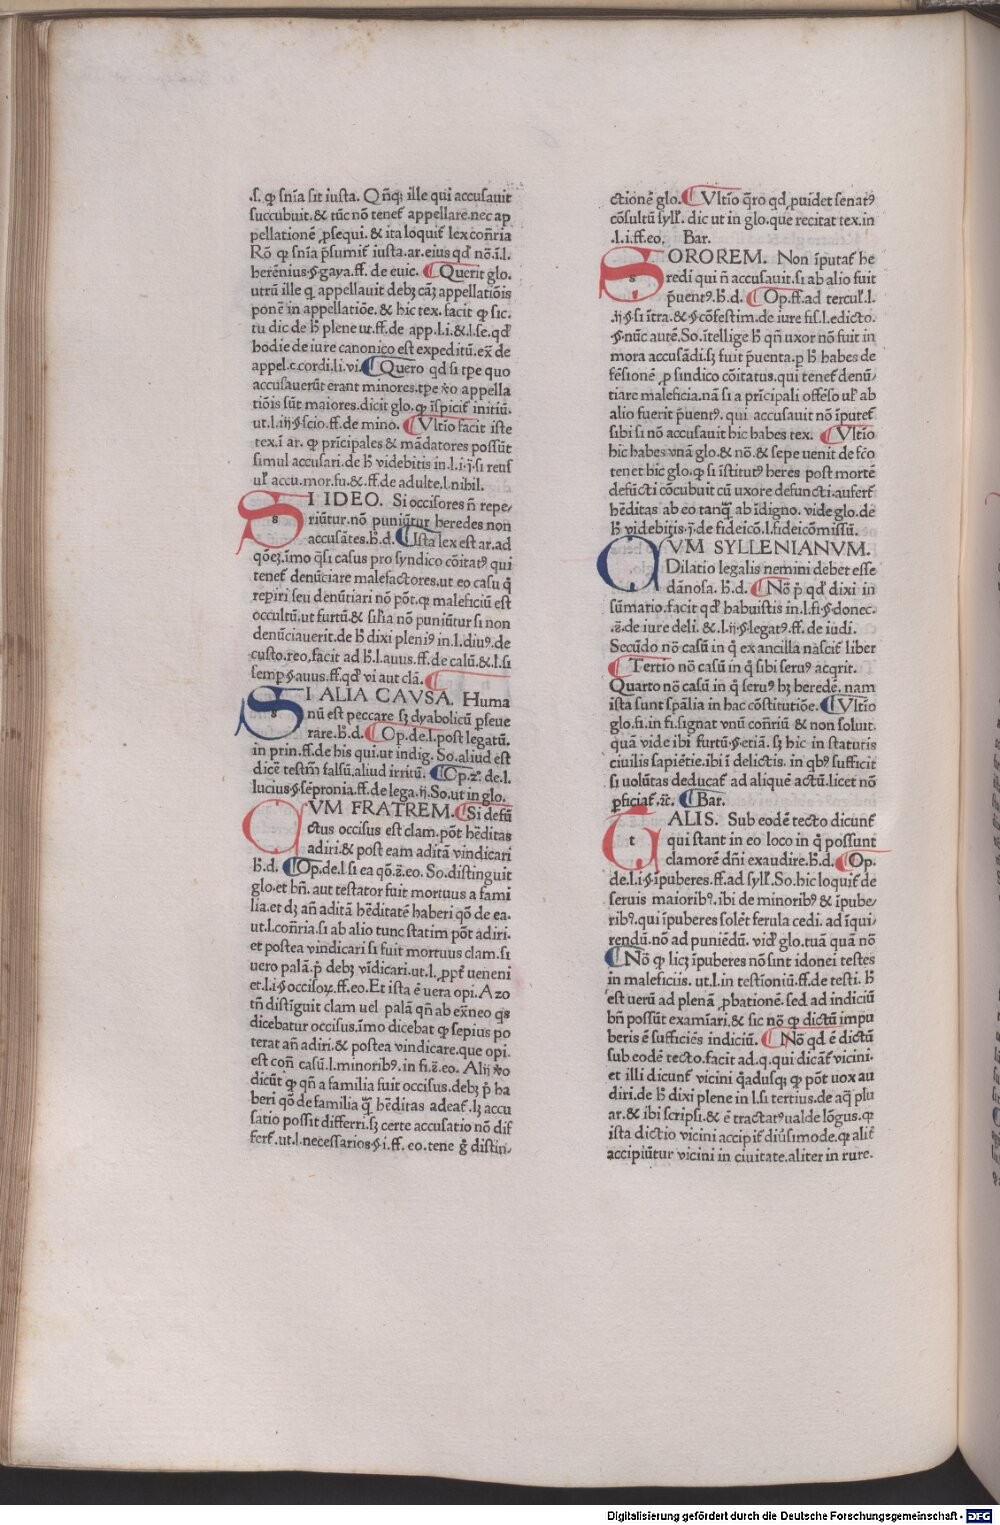 .s. ꝙ snīa sit iusta. Qñqꝫ ille qui accusauit
succubuit.& tūc nō tenet̃ appellare.nec ap
pellationē ꝓsequi.& ita loquit̃ lex cōn̄ria
Rō ꝙ snīa p̄sumit̃ iusta.ar.eius qđ nō.ī.l.
herēnius.§.gaya.ff. de euic. ¶Querit glo.
utrū ille q̄ appellauit debꝫ cāꝫ appellatiōis
ponē in appellatiōe.& hic tex. facit ꝙ sic.
tu dic de h̄ plene ut.ff.de app.l.i.& l.se.qđ
hodie de iure canonico est expeditū.ex̄ de
appel.c.cordi.li.vi.¶Quero qđ si tp̄e quo
accusauerūt erant minores.tp̄e v̄o appella
tiōis sūt maiores.dicit glo.ꝙ īspicit̃ initiū.
ut.l.iij§scio.ff.de mino. ¶Vltīo facit iste
tex.ī ar. ꝙ prīcipales & mādatores possūt
simul accusari.de h̄ videbitis in.l.i.j̄.si reus
ul̃ accu.mor.fu.&.ff.de adulte.l.nihil.
SI IDEO. Si occisores n̄ repe/
riūtur.nō puniūtur heredes non
accusātes.h̄.d.¶Ista lex est ar.ad
qōeꝫ.īmo q̄si casus pro syndico cōitatꝰ qui
tenet̃ denūciare malefactores.ut eo casu q̄
reꝑiri seu denūtiari nō pōt.ꝙ maleficiū est
occultū.ut furtū.& sil̃ia nō puniūtur si non
denūciauerit.de h̄ dixi pleniꝰ in.l.diuꝰ.de
custo.reo.facit ad h̄.l.auus.ff.de calū.&.l.si
semp̱.§.auus.ff.qđ vi aut clā.¶
SI ALIA CAVSA. Huma
nū est peccare sꝫ dyabolicū ꝑseue
rare.h̄.d.¶Op.de.l.post legatū.
in prin.ff.de his qui.ut indig. So.aliud est
dicē testm̄ falsū.aliud irritū. ¶Op.2ͦ.de.l.
lucius.§.sēpronia.ff.de lega.ij.So.ut in glo.
CVM FRATREM.¶Si defū
ctus occisus est clam.pōt hēditas
adiri.& post eam aditā vindicari
h̄.d. ¶Op.de.l.si ea qō.ē.eo. So.distinguit
glo.et bn̄. aut testator fuit mortuus a fami
lia.et dꝫ an̄ aditā hēditatē haberi qō de ea.
ut.l.cōn̄ria.si ab alio tunc statim pōt adiri.
et postea vindicari si fuit mortuus clam.si
uero palā.p̄ debꝫ vīdicari.ut.l.ꝓpt̄ ueneni
et.l.i.§.occisoꝝ.ff.eo.Et ista ē uera opi.Azo
tn̄ distīguit clam uel palā qn̄ ab ex̄neo qs̄
dicebatur occisus.īmo dicebat ꝙ sepius po
terat an̄ adiri.& postea vindicare.que opi.
est con̄ casū.l.minoribꝰ.in fi.ē.eo. Alij v̄o
dicūt ꝙ qn̄ a familia fuit occisus.debꝫ p̄ ha
beri qō de familia q̄ꝫ hēditas adeat̃.lꝫ accu
satio possit differri.sꝫ certe accusatio nō dif
fert̃.ut.l.necessarios.§.i.ff. eo.tene g̊ distin/
ctionē glo.¶Vltīo q̄ro qđ ꝓuidet senatꝰ
cōsultū syll̃. dic ut in glo.que recitat tex.in
.l.i.ff.eo. Bar.
SOROREM. Non īputat̃ he
redi qui n̄ accusauit.si ab alio fuit
p̄uentꝰ.h̄.d. ¶Op.ff.ad tercul̃.l.
.ij.§.si ītra.& §.cōfestim.de iure fis.l.edicto.
.§.nūc autē.So.ītellige h̄ qn̄ uxor nō fuit in
mora accusādi.sꝫ fuit p̄uenta.ꝑ h̄ habes de
fēsionē ꝓ sindico cōitatus.qui tenet̃ denū/
tiare maleficia.nā si a prīcipali offēso ul̃ ab
alio fuerit p̄uentꝰ. qui accusauit nō īputet̃
sibi si nō accusauit hic habes tex. ¶Vltīo
hic habes vnā glo.& nō.& sepe uenit de fc̄o
tenet hic glo.ꝙ si īstitutꝰ heres post mortē
defūcti cōcubuit cū uxore defuncti.aufert̃
hēditas ab eo tanq̄ꝫ ab īdigno. vide glo.de
h̄ videbitis.j̄.de fideicō.l.fideicōmissū.
CVM SYLLENIANVM.
Dilatio legalis nemini debet esse
dānosa. h̄.d. ¶Nō p̄ qđ dixi in
sūmario.facit qđ habuistis in.l.fi.§.donec.
.ē.de iure deli. & .l.ij.§.legatꝰ.ff. de iudi.
Secūdo nō casū in q̄ ex ancilla nascit̃ liber
¶Tertio nō casū in q̄ sibi seruꝰ acq̄rit.
Quarto nō casū in q̄ seruꝰ hꝫ heredē. nam
ista sunt spālia in hac cōstitutiōe. ¶Vltīo
glo.fi.in fi.signat vnū cōn̄riū & non soluit.
quā vide ibi furtū.§.etiā.sꝫ hic in statutis
ciuilis sapiētie.ibi ī delictis. in qbꝰ sufficit
si volūtas deducat̃ ad aliquē actū.licet nō
ꝑficiat̃.⁊c̄. ¶Bar.
TALIS. Sub eodē tecto dicunt̃
qui stant in eo loco in q̄ possunt
clamorē dn̄i exaudire.h̄.d.¶Op.
de.l.i.§.īpuberes.ff.ad syll̃.So.hic loquit̃ de
seruis maioribꝰ.ibi de minoribꝰ & īpube/
ribꝰ.qui īpuberes solēt ferula cedi. ad īqui/
rendū.nō ad puniēdū. vid̃ glo.tuā quā nō
¶Nō ꝙ licꝫ īpuberes nō sint idonei testes
in maleficiis. ut.l.in testīoniū.ff.de testi. h̄
est uerū ad plenā ꝓbationē.sed ad indiciū
bn̄ possūt examīari.& sic nō ꝙ dictū impu
beris ē sufficiēs indiciū. ¶Nō qđ ē dictū
sub eodē tecto.facit ad.q.qui dicāt̃ vicini.
et illi dicunt̃ vicini q̄adusqꝫ ꝙ pōt uox au
diri.de h̄ dixi plene in.l.si tertius.de aq̄ plu
ar.& ibi scripsi.& ē tractatꝰ ualde lōgus.ꝙ
ista dictio vicini accipit̃ diūsimode.ꝙ alit̃
accipiūtur vicini in ciuitate.aliter in rure.
Digitalisierung gefördert durch die Deutsche Forschungsgemeinschaft - DFG